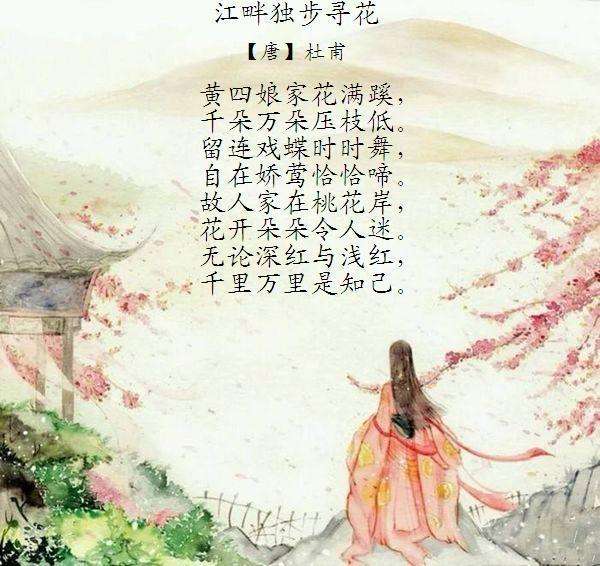 江畔独步寻花
【唐】杜甫
黄四娘家花满蹊，
千朵万朵压枝低。
留连戏蝶时时舞，
自在娇莺恰恰啼。
故人家在桃花岸，
花开朵朵令人迷。
无论深红与浅红，
千里万里是知己。